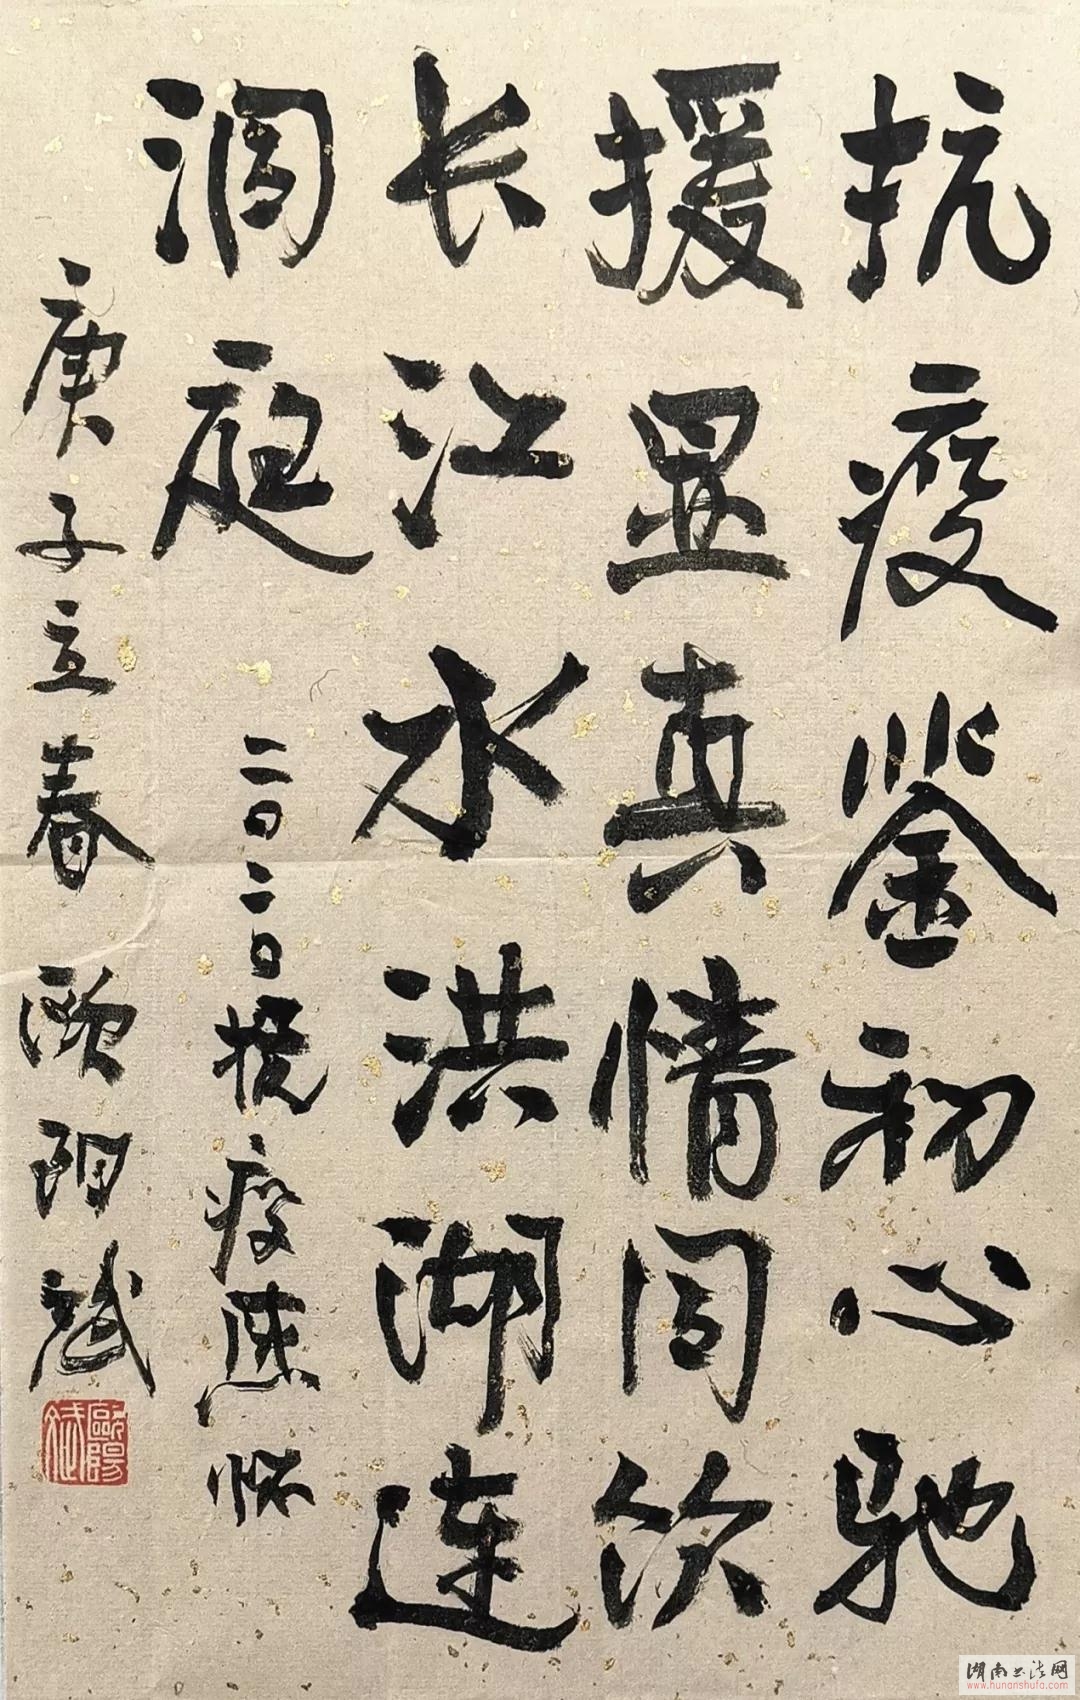 抗疫鉴初心驰
援显真情同饮
长江水洪湖连
洞庭
二〇二〇抗疫感怀
庚子立春 欧阳斌
歐陽斌
湖南书法网
www.hunanshufa.com